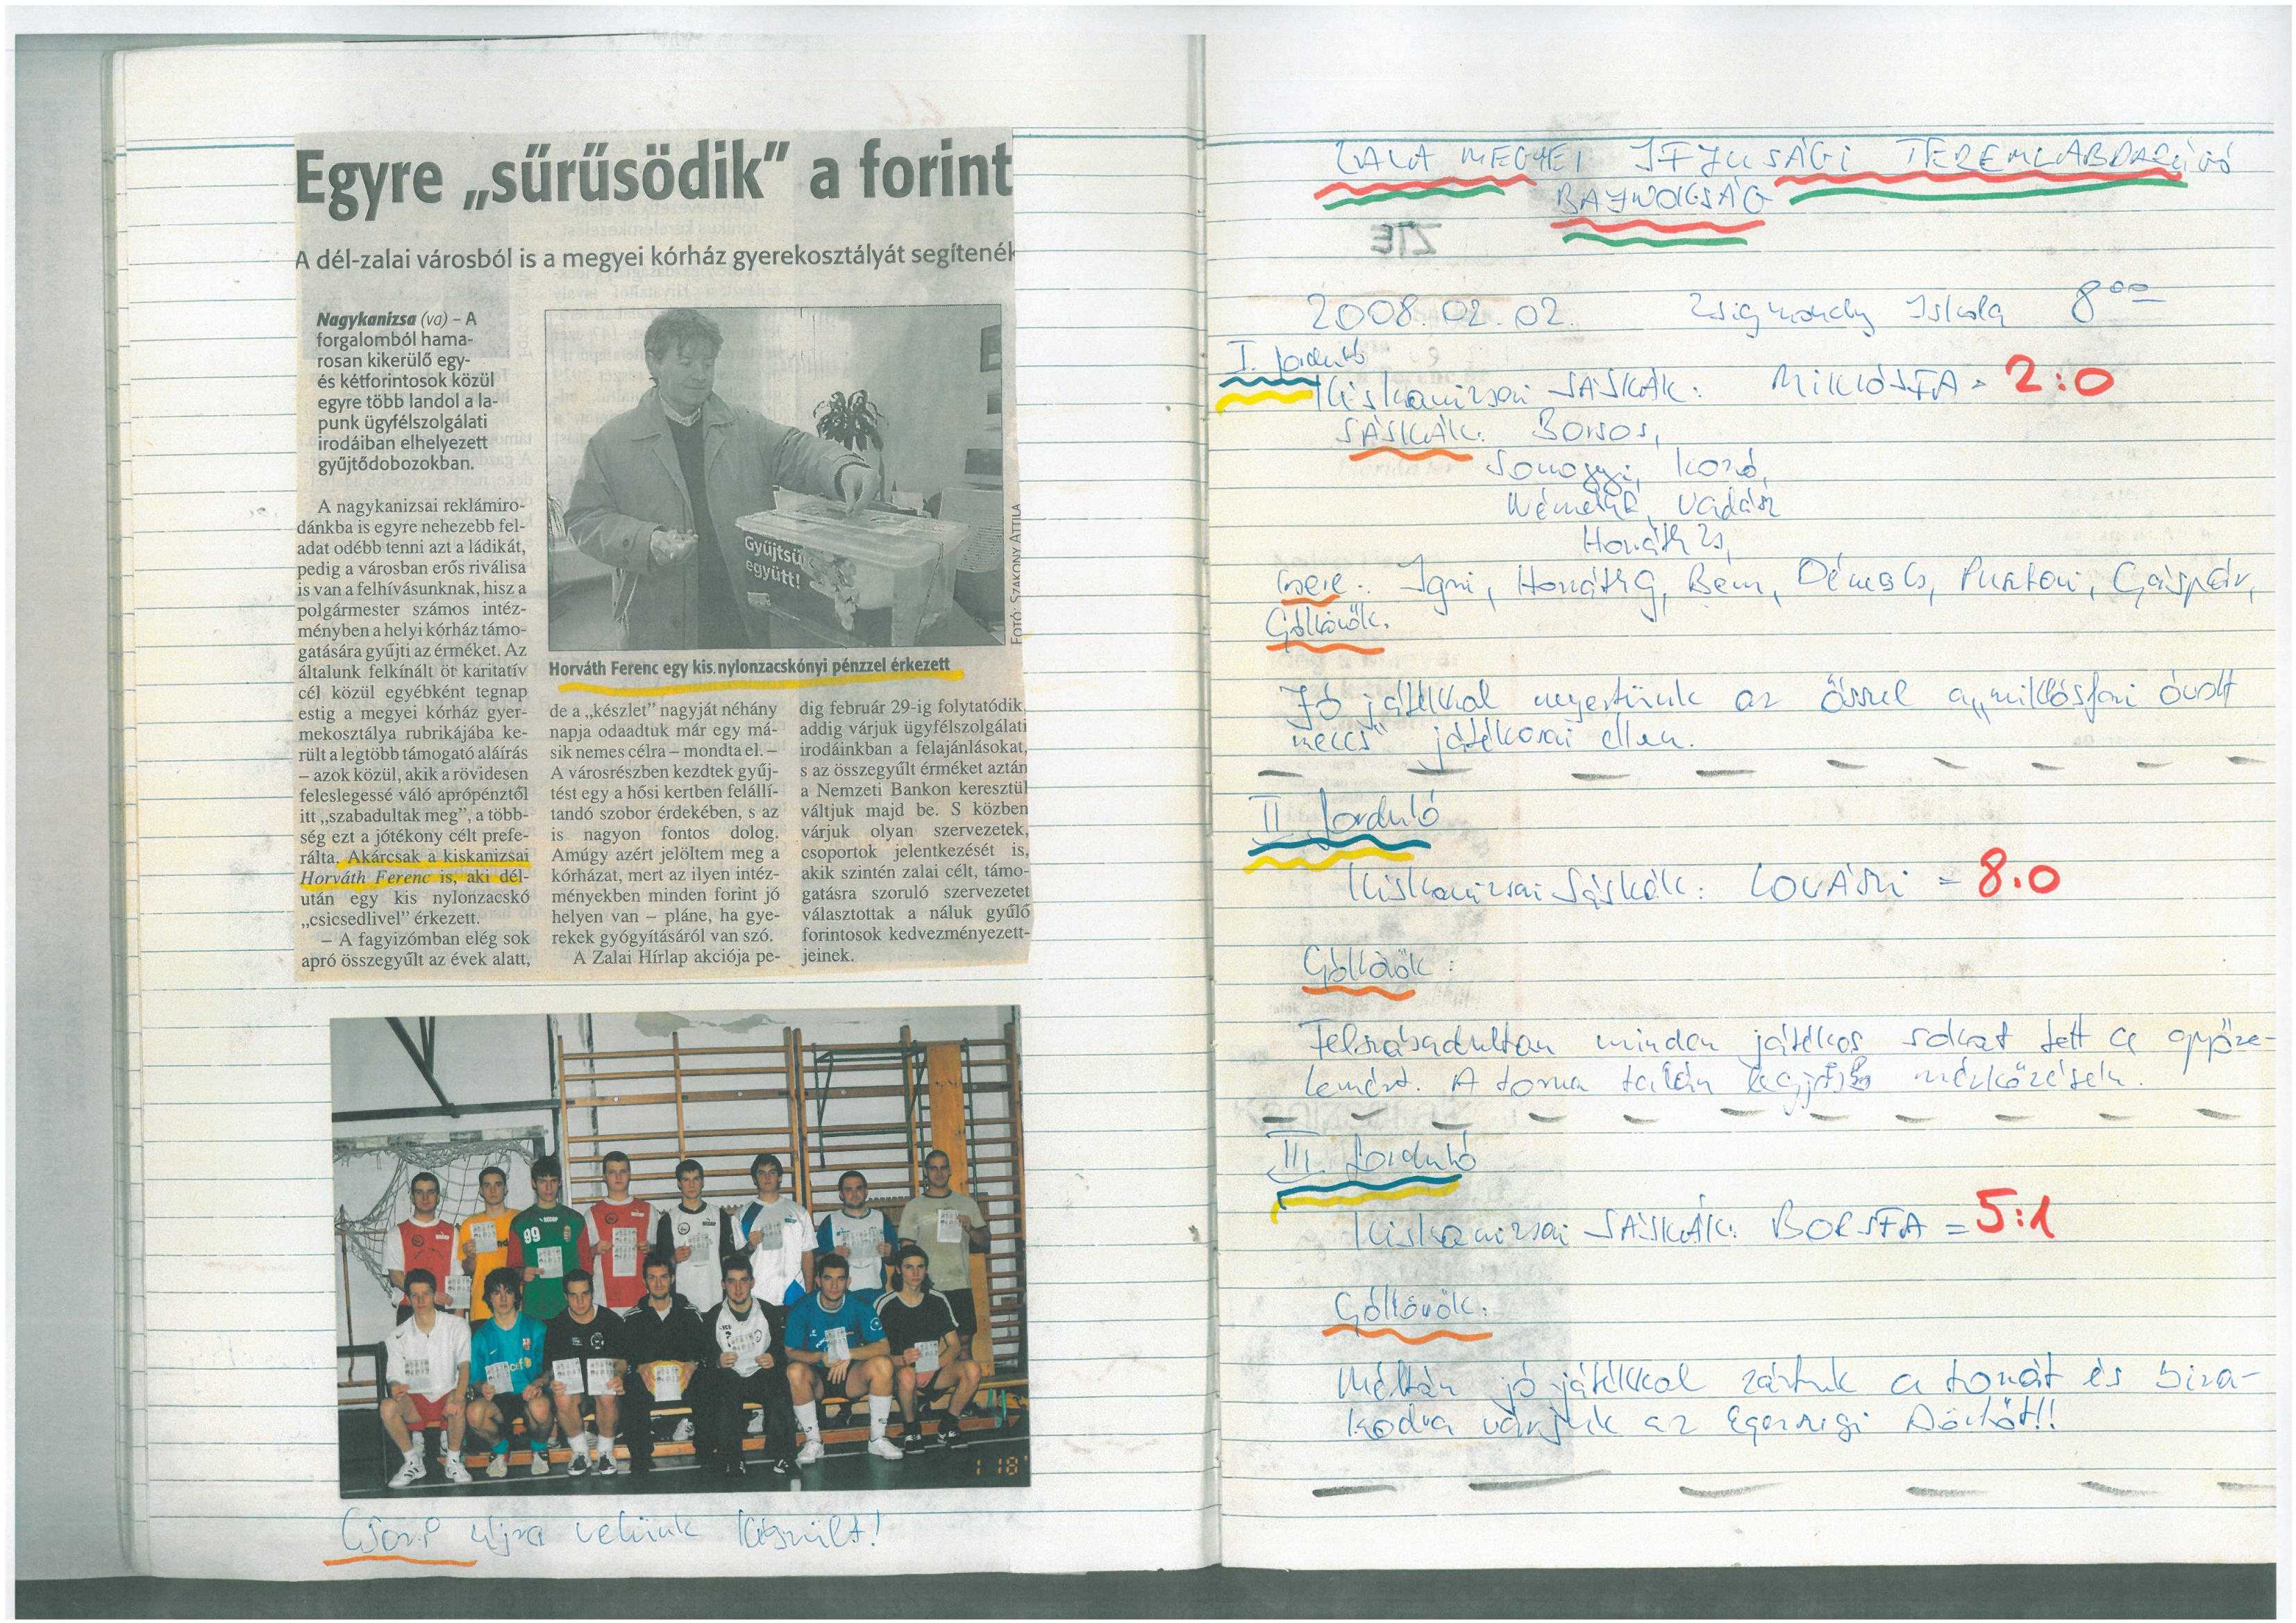 Egyre „sűrűsödik” a forint
A dél-zalai városból is a megyei kórház gyerekosztályát segítenék
Nagykanizsa (va) – A
forgalomból hama-
rosan kikerülő egy-
és kétforintosok közül
egyre több landol a la-
punk ügyfélszolgálati
irodáiban elhelyezett
gyűjtődobozokban.
A nagykanizsai reklámiro-
dánkba is egyre nehezebb fel-
adat odébb tenni azt a ládikát,
pedig a városban erős riválisa
is van a felhívásunknak, hisz a
polgármester számos intéz-
ményben a helyi kórház támo-
gatására gyűjti az érméket. Az
általunk felkínált öt karitatív
cél közül egyébként tegnap
estig a megyei kórház gyer-
mekosztálya rubrikájába ke-
rült a legtöbb támogató aláírás
– azok közül, akik a rövidesen
feleslegessé váló aprópénztől
itt „szabadultak meg”, a több-
ség ezt a jótékony célt prefe-
rálta. Akárcsak a kiskanizsai
Horváth Ferenc is, aki dél-
után egy kis nylonzacskó
„csicsedlivel” érkezett.
– A fagyizómban elég sok
apró összegyűlt az évek alatt,
Gyűjtsü
együtt!
FOTÓ: SZAKONY ATTILA
Horváth Ferenc egy kis nylonzacskónyi pénzzel érkezett
de a „készlet” nagyját néhány
napja odaadtuk már egy má-
sik nemes célra – mondta el. –
A városrészben kezdtek gyűj-
tést egy a hősi kertben felállí-
tandó szobor érdekében, s az
is nagyon fontos dolog.
Amúgy azért jelöltem meg a
kórházat, mert az ilyen intéz-
ményekben minden forint jó
helyen van – pláne, ha gye-
rekek gyógyításáról van szó.
A Zalai Hírlap akciója pe-
dig február 29-ig folytatódik,
addig várjuk ügyfélszolgálati
irodáinkban a felajánlásokat,
s az összegyűlt érméket aztán
a Nemzeti Bankon keresztül
váltjuk majd be. S közben
várjuk olyan szervezetek,
csoportok jelentkezését is,
akik szintén zalai célt, támo-
gatásra szoruló szervezetet
választottak a náluk gyűlő
forintosok kedvezményezett-
jeinek.
99
1 18
újra velünk készült!
ZALA MEGYEI IFJUSÁGI TEREMLABDARÚGÓ
BAJNOKSÁG
ZTE
2008.02.02. Zsigmondy Iskola 8⁰⁰
I. forduló
Kiskanizsai SÁSKÁK: MIKLÓSFA = 2:0
SÁSKÁK: Borsos,
Somogyi, Kozó,
Németh, Vadász
Horváth Zs,
Csere: Igni, Horváth G, Bém, Dénes Cs, Punkoni, Gáspár,
Góllövők:
Jó játékkal nyertünk az ősszel a „miklósfai óvott
meccs” játékosai ellen.
II forduló
Kiskanizsai Sáskák: LOVÁSZI = 8:0
Góllövők:
Felszabadultan minden játékos sokat tett a győze-
lemért. A torna talán legjobb mérkőzésén.
III. forduló
Kiskanizsai SÁSKÁK: BORSFA = 5:1
Góllövők:
Méltán jó játékkal zártuk a tornát és biza-
kodva várjuk az Egerszegi Döntőt!!